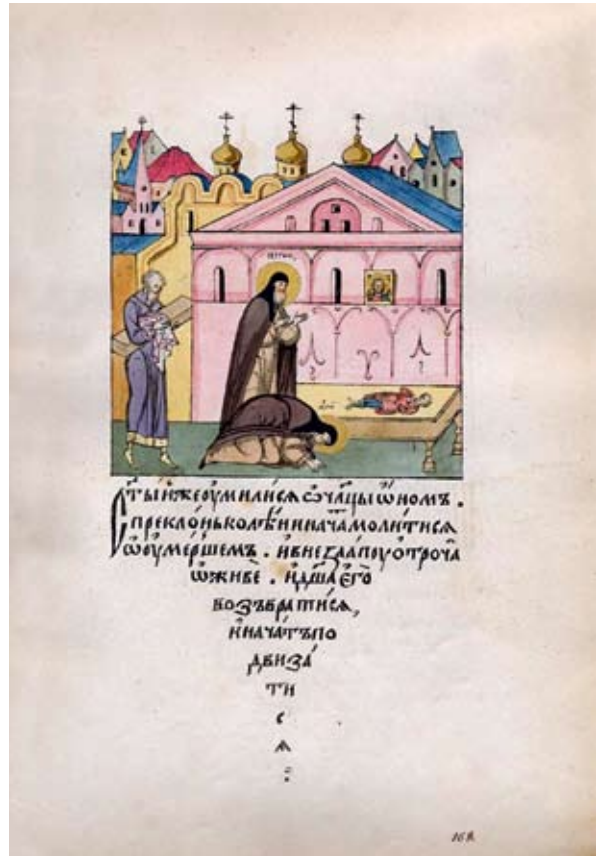 Ст҃ый же оумилися ѡ члц҃ы ѡном .
С преклонь колѣни и нача молитися
ѡ оумершемъ . и внезапоу отроча
ѡживе . и дш҃а єго
возъвратися,
и начатъ по
двиза
ти
с
ѧ :
168.